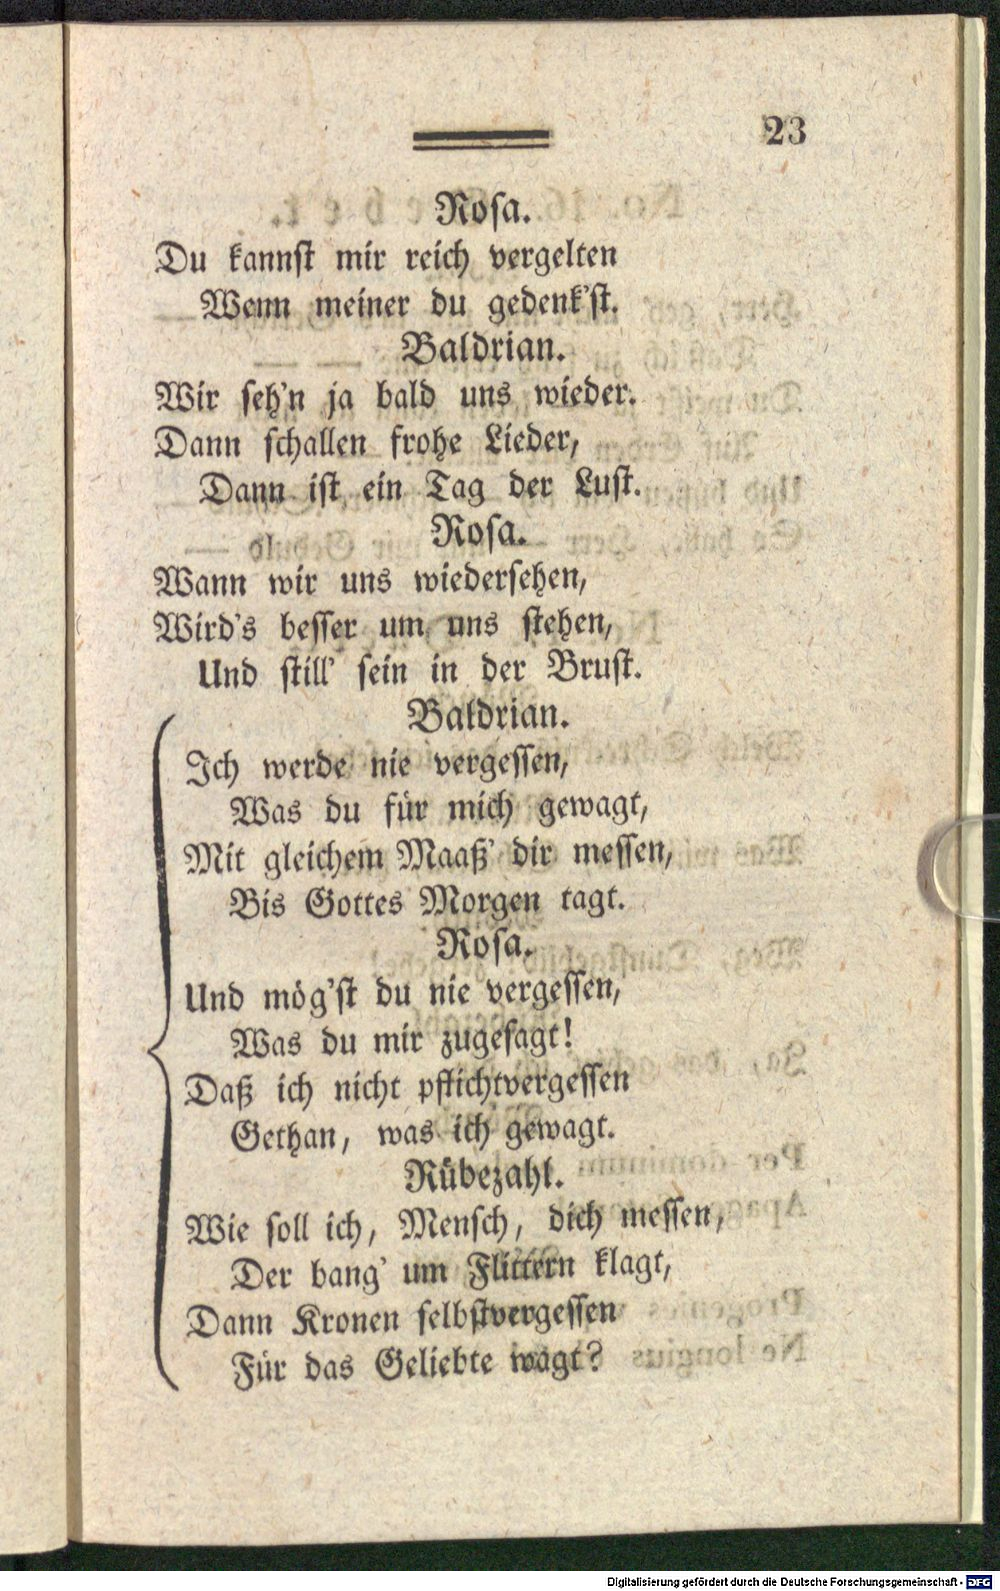 23
Rosa.
Du kannst mir reich vergelten
Wenn meiner du gedenk'st.
Baldrian.
Wir seh'n ja bald uns wieder.
Dann schallen frohe Lieder,
Dann ist ein Tag der Lust.
Rosa.
Wann wir uns wiedersehen,
Wird's besser um uns stehen,
Und still' sein in der Brust.
Baldrian.
Ich werde nie vergessen,
Was du für mich gewagt,
Mit gleichem Maaß' dir messen,
Bis Gottes Morgen tagt.
Rosa.
Und mög'st du nie vergessen,
Was du mir zugesagt!
Daß ich nicht pflichtvergessen
Gethan, was ich gewagt.
Rübezahl.
Wie soll ich, Mensch, dich messen,
Der bang' um Flittern klagt,
Dann Kronen selbstvergessen
Für das Geliebte wagt?
Digitalisierung gefördert durch die Deutsche Forschungsgemeinschaft - DFG